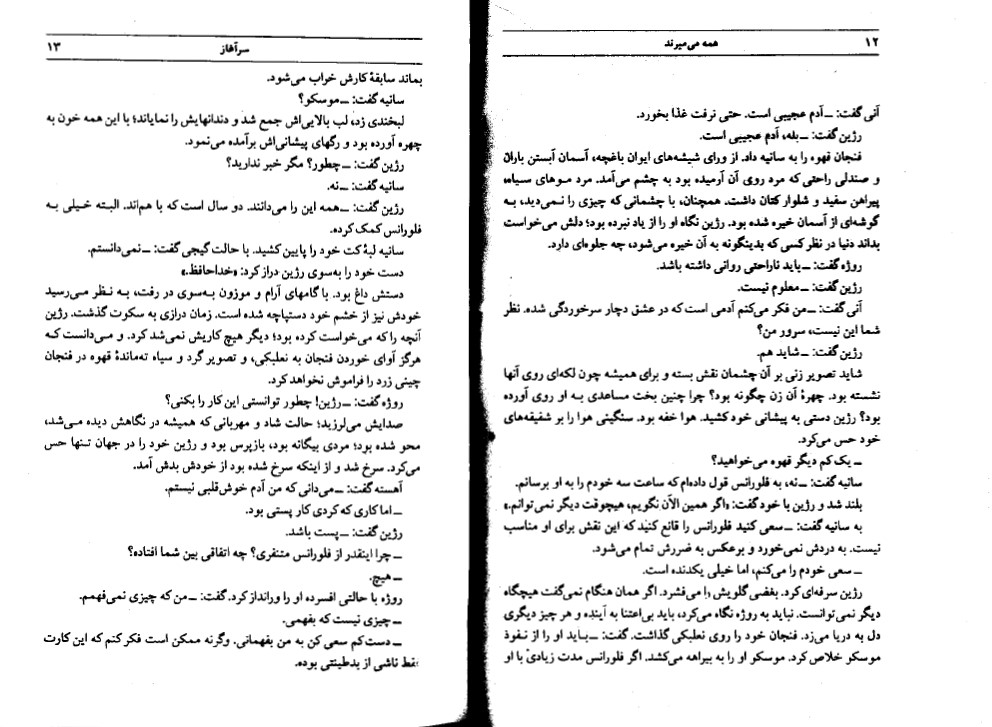 ۱۲
همه می‌میرند
آنی گفت: ــ آدم عجیبی است. حتی نرفت غذا بخورد.
رژین گفت: ــ بله، آدم عجیبی است.
فنجان قهوه را به سانیه داد. از ورای شیشه‌های ایوان باغچه، آسمان آبستن باران
و صندلی راحتی که مرد روی آن آرمیده بود به چشم می‌آمد. مرد موهای سیاه،
پیراهن سفید و شلوار کتان داشت. همچنان، با چشمانی که چیزی را نمی‌دید، به
گوشه‌ای از آسمان خیره شده بود. رژین نگاه او را از یاد نبرده بود؛ دلش می‌خواست
بداند دنیا در نظر کسی که بدینگونه به آن خیره می‌شود، چه جلوه‌ای دارد.
روژه گفت: ــ باید ناراحتی روانی داشته باشد.
رژین گفت: ــ معلوم نیست.
آنی گفت: ــ من فکر می‌کنم آدمی است که در عشق دچار سرخوردگی شده. نظر
شما این نیست، سرور من؟
رژین گفت: ــ شاید هم.
شاید تصویر زنی بر آن چشمان نقش بسته و برای همیشه چون لکه‌ای روی آنها
نشسته بود. چهرهٔ آن زن چگونه بود؟ چرا چنین بخت مساعدی به او روی آورده
بود؟ رژین دستی به پیشانی خود کشید. هوا خفه بود. سنگینی هوا را بر شقیقه‌های
خود حس می‌کرد.
ــ یک کم دیگر قهوه می‌خواهید؟
سانیه گفت: ــ نه، به فلورانس قول داده‌ام که ساعت سه خودم را به او برسانم.
بلند شد و رژین با خود گفت: «اگر همین الآن نگویم، هیچوقت دیگر نمی‌توانم.»
به سانیه گفت: ــ سعی کنید فلورانس را قانع کنید که این نقش برای او مناسب
نیست. به دردش نمی‌خورد و برعکس به ضررش تمام می‌شود.
ــ سعی خودم را می‌کنم، اما خیلی یکدنده است.
رژین سرفه‌ای کرد. بغضی گلویش را می‌فشرد. اگر همان هنگام نمی‌گفت هیچگاه
دیگر نمی‌توانست. نباید به روژه نگاه می‌کرد، باید بی‌اعتنا به آینده و هر چیز دیگری
دل به دریا می‌زد. فنجان خود را روی نعلبکی گذاشت. گفت: ــ باید او را از نفوذ
موسکو خلاص کرد. موسکو او را به بیراهه می‌کشد. اگر فلورانس مدت زیادی با او
سرآغاز
۱۳
بماند سابقهٔ کارش خراب می‌شود.
سانیه گفت: ــ موسکو؟
لبخندی زد، لب بالایی‌اش جمع شد و دندانهایش را نمایاند؛ با این همه خون به
چهره آورده بود و رگهای پیشانی‌اش برآمده می‌نمود.
رژین گفت: ــ چطور؟ مگر خبر ندارید؟
سانیه گفت: ــ نه.
رژین گفت: ــ همه این را می‌دانند. دو سال است که با هم‌اند. البته خیلی به
فلورانس کمک کرده.
سانیه لبهٔ کت خود را پایین کشید. با حالت گیجی گفت: ــ نمی‌دانستم.
دست خود را به‌سوی رژین دراز کرد: «خداحافظ.»
دستش داغ بود. با گامهای آرام و موزون به‌سوی در رفت، به نظر می‌رسید
خودش نیز از خشم خود دستپاچه شده است. زمان درازی به سکوت گذشت. رژین
آنچه را که می‌خواست کرده بود؛ دیگر هیچ کاریش نمی‌شد کرد. و می‌دانست که
هرگز آوای خوردن فنجان به نعلبکی، و تصویر گرد و سیاه ته‌ماندهٔ قهوه در فنجان
چینی زرد را فراموش نخواهد کرد.
روژه گفت: ــ رژین! چطور توانستی این کار را بکنی؟
صدایش می‌لرزید؛ حالت شاد و مهربانی که همیشه در نگاهش دیده می‌شد،
محو شده بود؛ مردی بیگانه بود، بازپرس بود و رژین خود را در جهان تنها حس
می‌کرد. سرخ شد و از اینکه سرخ شده بود از خودش بدش آمد.
آهسته گفت: ــ می‌دانی که من آدم خوش‌قلبی نیستم.
ــ اما کاری که کردی کار پستی بود.
رژین گفت: ــ پست باشد.
ــ چرا اینقدر از فلورانس متنفری؟ چه اتفاقی بین شما افتاده؟
ــ هیچ.
روژه با حالتی افسرده او را ورانداز کرد. گفت: ــ من که چیزی نمی‌فهمم.
ــ چیزی نیست که بفهمی.
ــ دست‌کم سعی کن به من بفهمانی. وگرنه ممکن است فکر کنم که این کارت
فقط ناشی از بدطینتی بوده.